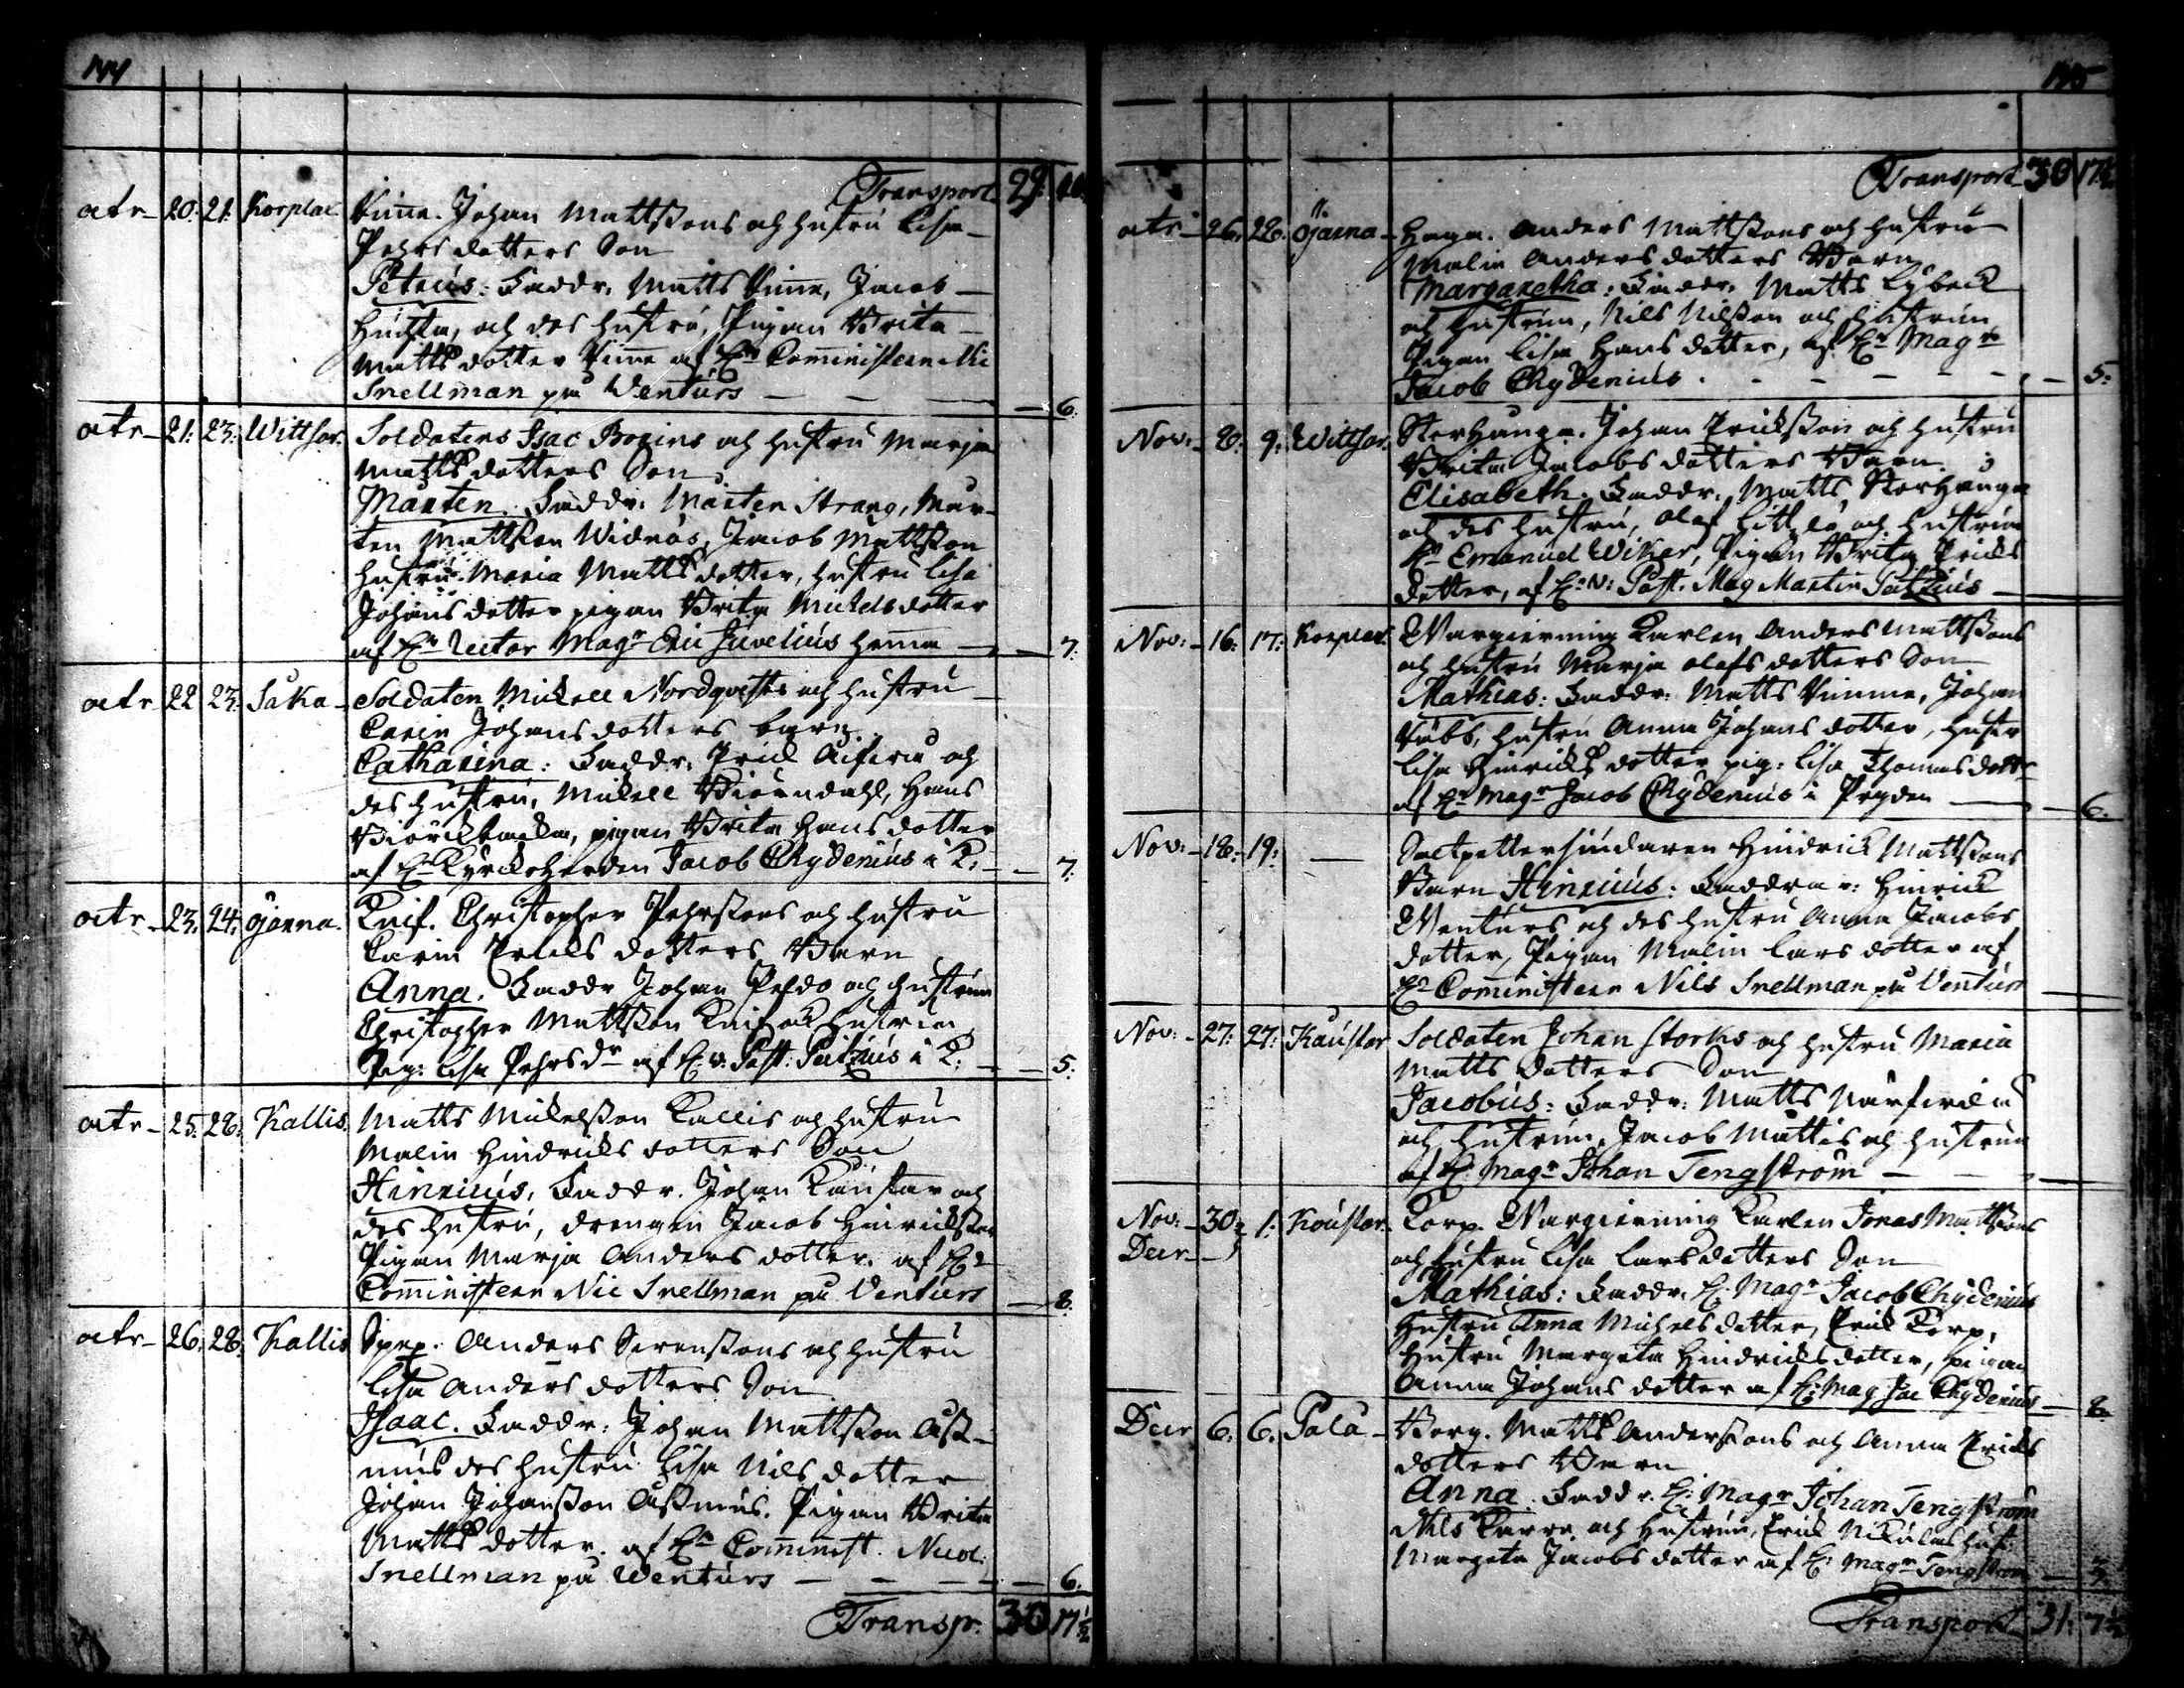 144
Transport 29:
atr 20: 21: Korplax Vinne. Johan Mattssons och hustru Lisa
Pehrs dotters Son
Petrus: Faddr. Matts Vinne, Jacob
och des hustru, Pigan Brita
Matts dotter Vinne af Hr Comministern Nic
Snellman på Wenturs — 6.
atr 21: 23: Wittsar. Soldatens Isac Bogens och hustru Marja
Matts dotters Son
Marten. Faddr. Mårten Strang, Mår-
ten Mattsson Widnäs, Jacob Mattsson
hustru Maria Matts dotter, hustru Lisa
Johans dotter pigan Brita Mickels dotter
af Hr Rector Magr Eric Juvelius hemma — 7.
atr 22 23: Såka Soldaten Mickell Nordqvists och hustru
Carin Johans dotters barn
Catharina: Faddr. Erick och
des hustru, Mickell Biörndahl, Hans
Biörkbacka, pigan Brita Hans dotter
af Hr Kyrckoherden Jacob Chydenius i K: — 7.
atr 23: 24: Öjanna. Knif. Christopher Pehrssons och hustru
Carin Ericks dotters Barn
Anna. Faddr Johan Peldo och hustrun
Christopher Mattsson Knif och hustrun
Pig: Lisa Pehrs dr af H: v: Past: Peitzius i K: — 5.
atr 25: 28: Kallis. Matts Mickelsson Kallis och hustru
Malin Hindricks dotters Son
Hinricus, Faddr. Johan Kaustar och
des hustru, drengen Jacob Hinricksson
Pigan Marja Anders dotter. af Hr
Comministern Nic Snellman på Venturs — 8.
atr 26: 28: Kallis Anders Serenssons och hustru
Lisa Anders dotters Son
Isaac. Faddr: Johan Mattsson Ass-
mus des hustru Lisa Nils dotter
Johan Johansson Assmus. Pigan Brita
Matts dotter. af Hr Comminist. Nicol:
Snellman på Wenturs — 6.
Transpr. 30 17½
145
Transport 30 17½
atr 26: 28: Öjanna Haga. Anders Mattssons och hustru
Malin Anders dotters Barn
Margaretha: Faddr. Matts Lybeck
och hustrun, Nils Nilsson och hustrun
Pigan Lisa Hans dotter, af Hr Magr
Jacob Chydenius — 5:
Nov: 8: 9: Wittsar. Storhauga. Johan Ericksson och hustru
Brita Jacobs dotters Barn
Elisabeth. Faddr. Matts Storhauga
och des hustru, Olof och hustrun
Hr Emanuel Wikar, Pigan Brita Ericks
dotter, af Hr v: Past. Mag Martin Peitzius
Nov: 16: 17: Korplax. Wargierning Karlen Anders Mattssons
och hustru Marja Olofs dotters Son
Mathias: Faddr: Matts Vinne, Johan
hustru Anna Johans dotter, hustr
Lisa Hinricks dotter pig: Lisa Thomas dottr
af Hr Magr Jacob Chydenius i Pryden — 6.
Nov: 18: 19: — Saltpettersiudaren Hindrick Mattssons
Barn Hinricus: Faddrar: Hinrick
Wenturs och des hustru Anna Jacobs
dotter, Pigan Malin Lars dotter af
Hr Comministern Nils Snellman på Venturs
Nov: 27: 27: Kaustar Soldaten Johan Storks och hustru Maria
Matts dotters Son
Jacobus: Faddr: Matts
och hustrun, Jacob Mattis och hustrun
af H: Magr Johan Tengström
Nov: 30 1: Koustar. Korp. Wargierning Karlen Jonas Mattssons
Decr och hustru Lisa Lars dotters Son
Mathias: Faddr. H: Magr Jacob Chydenius
hustru Anna Michels dotter, Erick Korp,
hustru Margeta Hindricks dotter, pigan
Anna Johans dotter af H: Mag Jac Chydenius — 8.
Decr 6: 6. Palå Borg. Matts Anderssons och Anna Ericks
dotters Barn
Anna. Faddr. H: Magr Johan Tengström
Nils Karra och hustrun, Erick hust:
Margeta Jacobs dotter af H: Magr Tengström
Transport 31: 7½